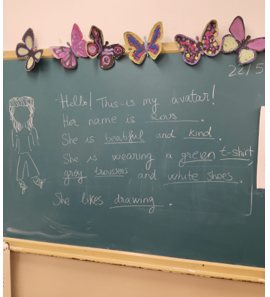 22/5
Hello! This is my avatar!
Her name is
She is beautiful and kind.
She is wearing a green t-shirt
gray trousers and white shoes.
She likes drawing.